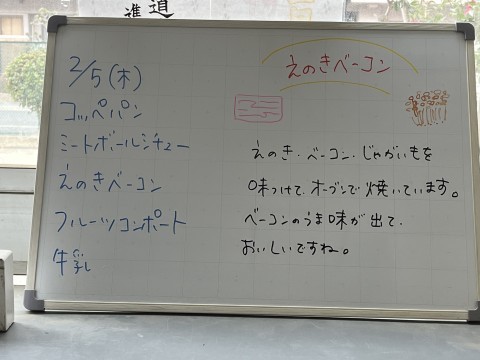 進道
2/5(木)
コッペパン
ミートボールシチュー
えのきベーコン
フルーツコンポート
牛乳
えのきベーコン
えのき・ベーコン・じゃがいもを
味つけて、オーブンで焼いています。
ベーコンのうま味が出て、
おいしいですね。